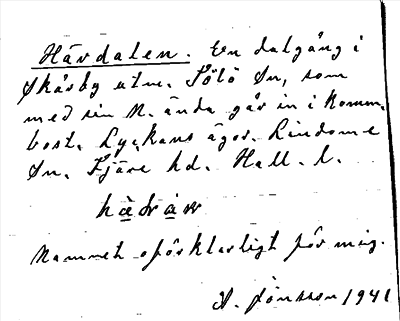 Härdalen. En dalgång i
Skårsby utm. Tölö Sn, som
med sin N. ända går in i komm.
bost. Lyckans ägor. Lindome
Sn. Fjäre hd. Hall. l.
hàrdar
Namnet oförklarligt för mig.
A. Jönsson 1941